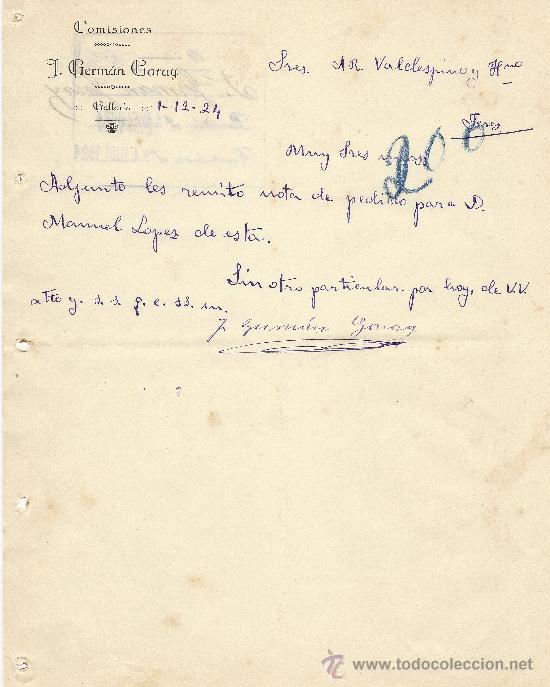 Comisiones
J. Germán Garay
Gallarta 1-12-24
Sres. AR Valdespino y Hno
Jerez
200
Muy Sres
Adjunto les remito nota de pedido para D.
Manuel Lopez de esta.
Sin otro particular por hoy, de V.V.
atto y. s. s. q. e. ss. m.
J. Germán Garay
todocoleccion
www.todocoleccion.net